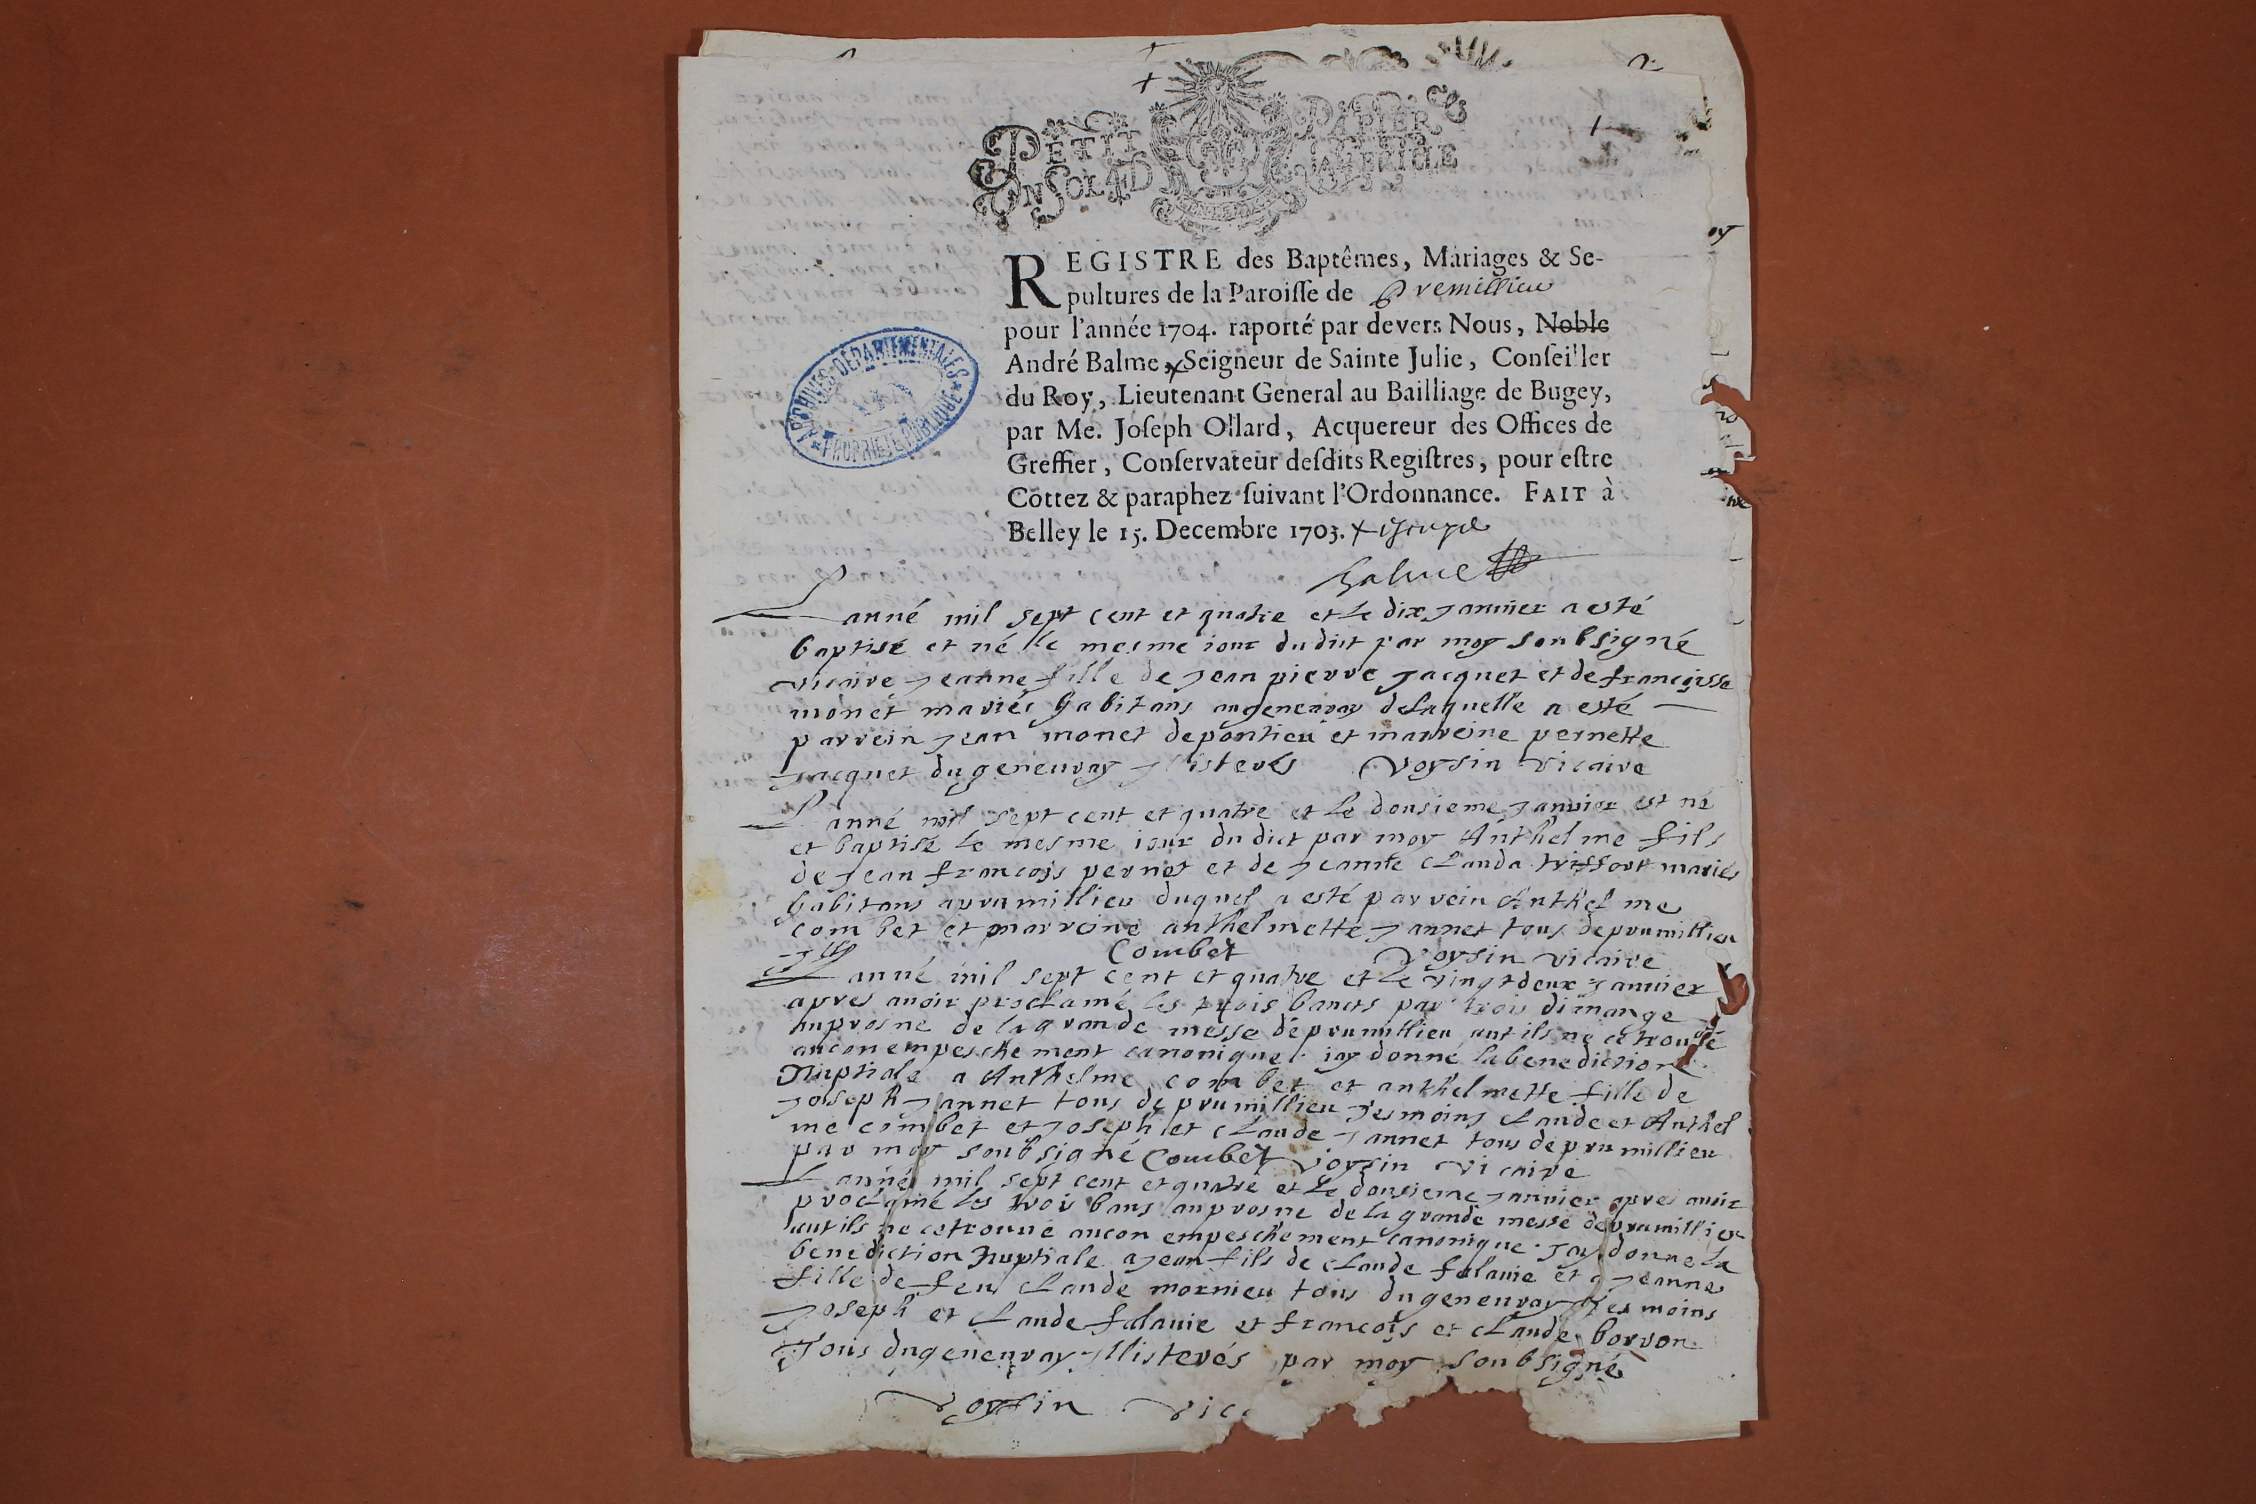 PETIT PAPIER
UN SOL 4 D LA FEUILLE
REGISTRE des Baptêmes, Mariages & Se-
pultures de la Paroisse de premillieu
pour l'année 1704. raporté par devers Nous, Noble
André Balme, x Seigneur de Sainte Julie, Conseiller
du Roy, Lieutenant General au Bailliage de Bugey,
par Me. Joseph Ollard, Acquereur des Offices de
Greffier, Conservateur desdits Registres, pour estre
Cottez & paraphez suivant l'Ordonnance. FAIT à
Belley le 15. Decembre 1703. x
Balme
ARCHIVES DÉPARTEMENTALES
PROPRIÉTÉ PUBLIQUE
L anné mil sept cent et quatre et le dix janvier a esté
baptisé et né le mesme iour du dict par moy soubsigné
vicaire jeanne fille de jean pierre jacquet et de francoisse
monet mariés habitans au genevray de laquelle a esté
parrein jean monet de pontieu et marreine pernette
jacquet du genevray Illisterés Voysin vicaire
L anné mil sept cent et quatre et le dousieme janvier est né
et baptisé le mesme iour du dict par moy Anthelme fils
de jean francois pernet et de jeanne clauda triffort mariés
habitans a prumillieu duquel a esté parrein Anthelme
combet et marreine anthelmette jannet tous de prumillieu
Ill Combet Voysin vicaire
L anné mil sept cent et quatre et le vingt deux janvier
apres avoir proclamé les trois bancts par trois dimange
au prosne de la grande messe de prumillieu aut ils ne ce trouvé
aucon empeschement canonique iay donné la benediction
Nuptiale a Anthelme combet et anthelmette fille de
joseph jannet tous de prumillieu Tesmoins claude et Anthel
me combet et joseph et claude jannet tous de prumillieu
par moy soubsigné Combet Voysin vicaire
L anné mil sept cent et quatre et le dousieme janvier apres avoir
proclamé les trois bans au prosne de la grande messe de prumillieu
aut ils ne ce trouvé aucon empeschement canonique Jay donné la
benediction Nuptiale a jean fils de claude falavie et a jeanne
fille de feu claude mornieu tous du genevray Tesmoins
joseph et claude falavie et francois et claude borron
Tous du genevray Illisterés par moy soubsigné
Voysin vic